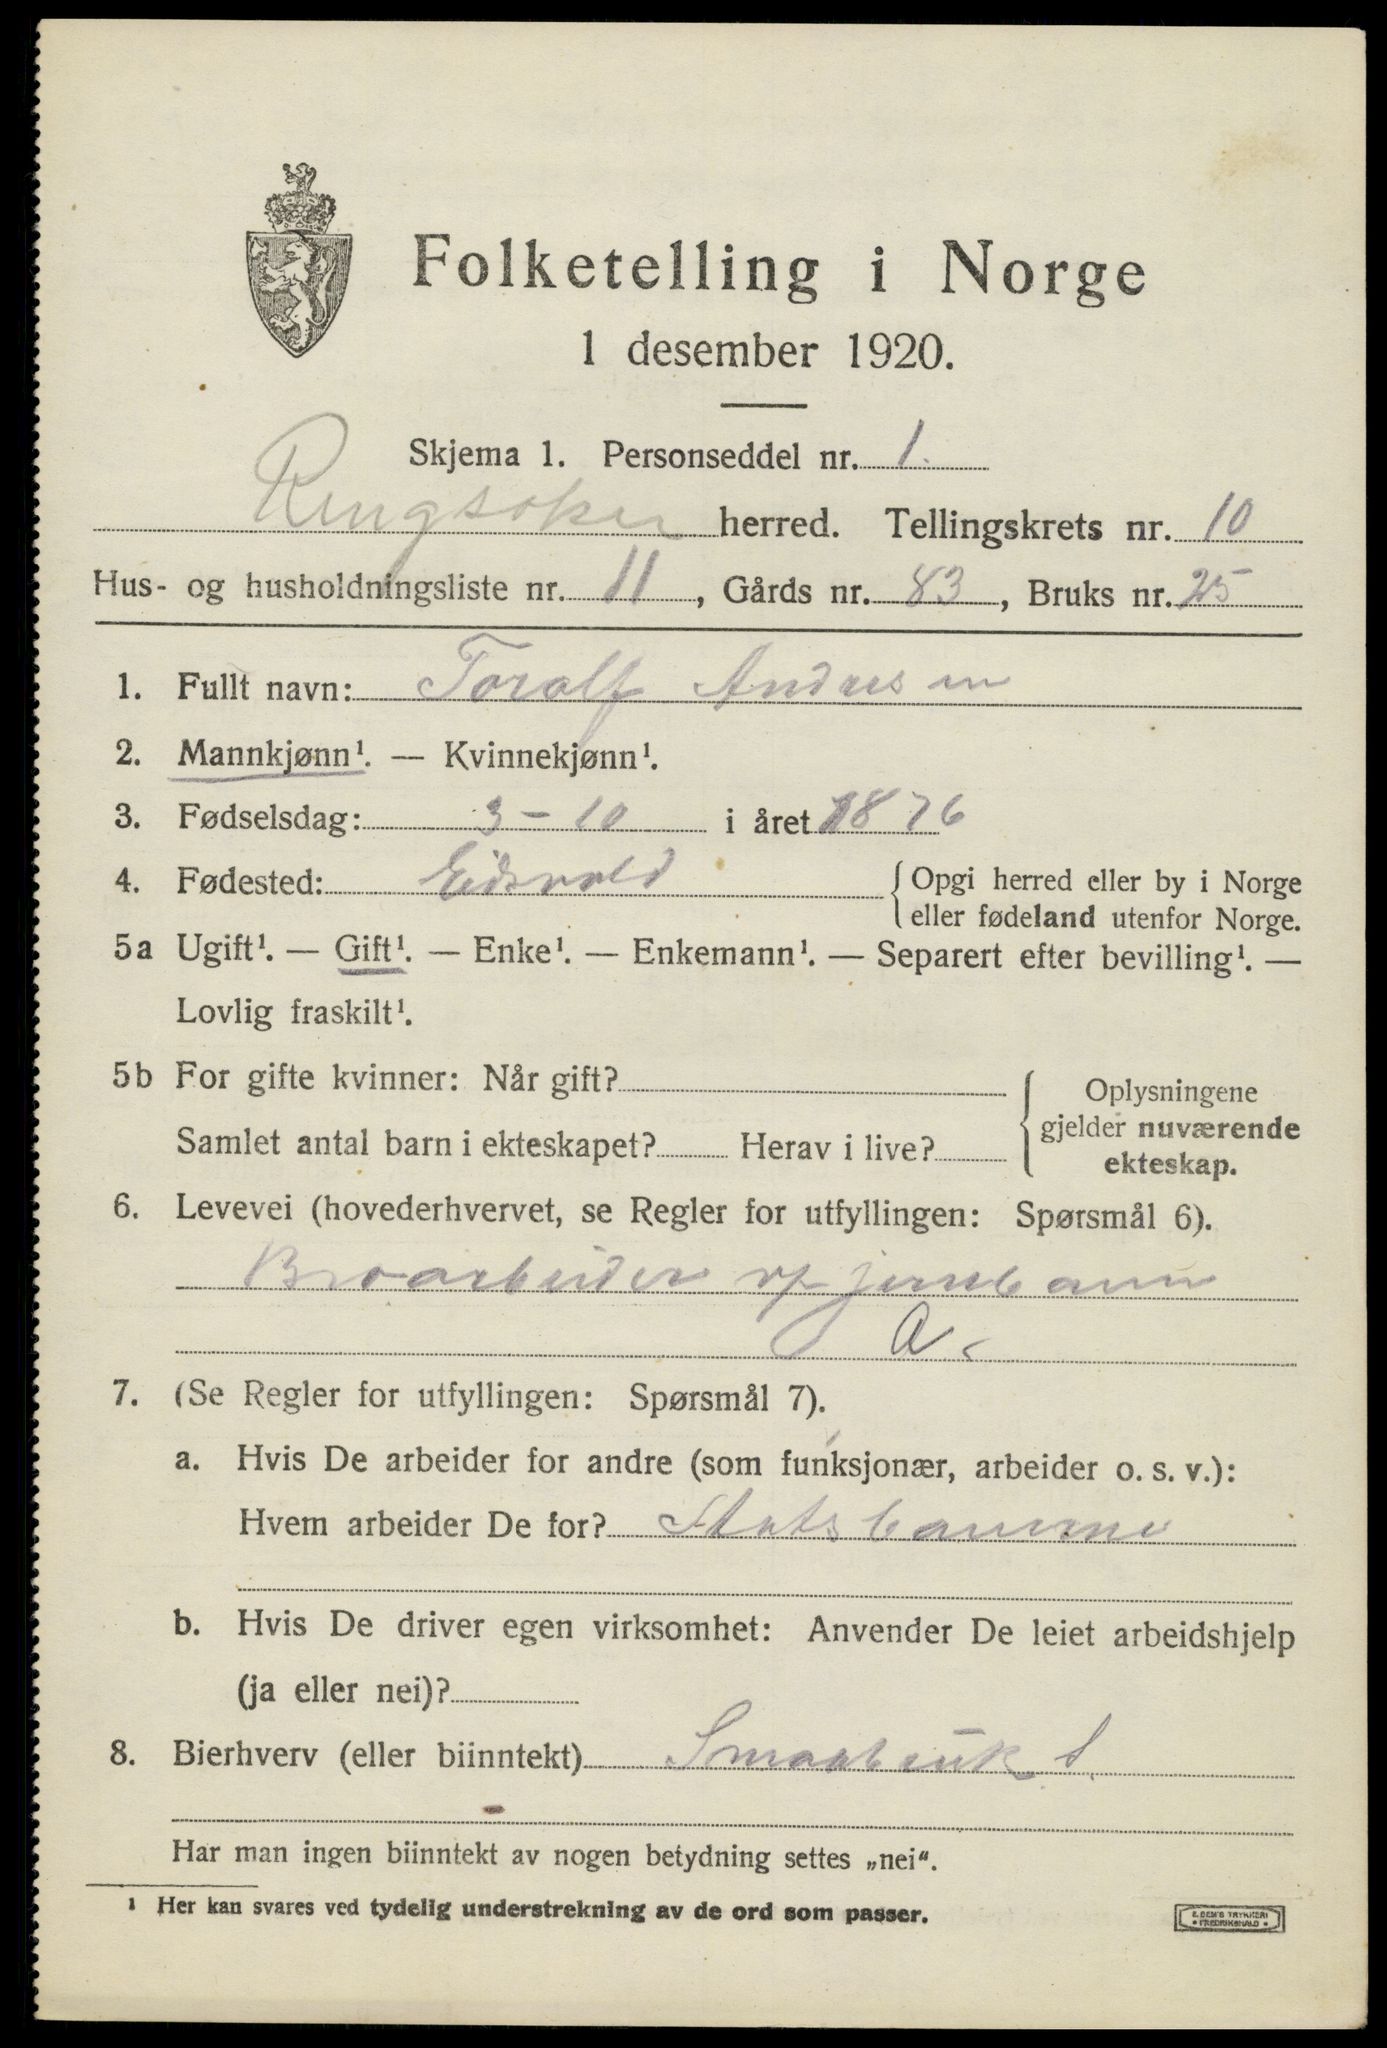 Folketelling i Norge
1 desember 1920.
Skjema 1. Personseddel nr. 1.
Ringsaker herred. Tellingskrets nr. 10
Hus- og husholdningsliste nr. 11, Gårds nr. 83, Bruks nr. 25
1. Fullt navn: Toralf Andresen
2. Mannkjønn¹. — Kvinnekjønn¹.
3. Fødselsdag: 3-10 i året 1876
4. Fødested: Eidsvold {Opgi herred eller by i Norge
eller fødeland utenfor Norge.
5a Ugift¹. — Gift¹. — Enke¹. — Enkemann¹. — Separert efter bevilling¹. —
Lovlig fraskilt¹.
5b For gifte kvinner: Når gift?
Samlet antal barn i ekteskapet? Herav i live?
{Oplysningene
gjelder nuværende
ekteskap.
6. Levevei (hovederhvervet, se Regler for utfyllingen: Spørsmål 6).
Broarbeider v/ jernbanen
a.
7. (Se Regler for utfyllingen: Spørsmål 7).
a. Hvis De arbeider for andre (som funksjonær, arbeider o. s. v.):
Hvem arbeider De for? Statsbanerne
b. Hvis De driver egen virksomhet: Anvender De leiet arbeidshjelp
(ja eller nei)?
8. Bierhverv (eller biinntekt) Smaabruk S.
Har man ingen biinntekt av nogen betydning settes „nei“.
¹ Her kan svares ved tydelig understrekning av de ord som passer.
E. SEM'S TRYKKERI
• FREDRIKSHALD •